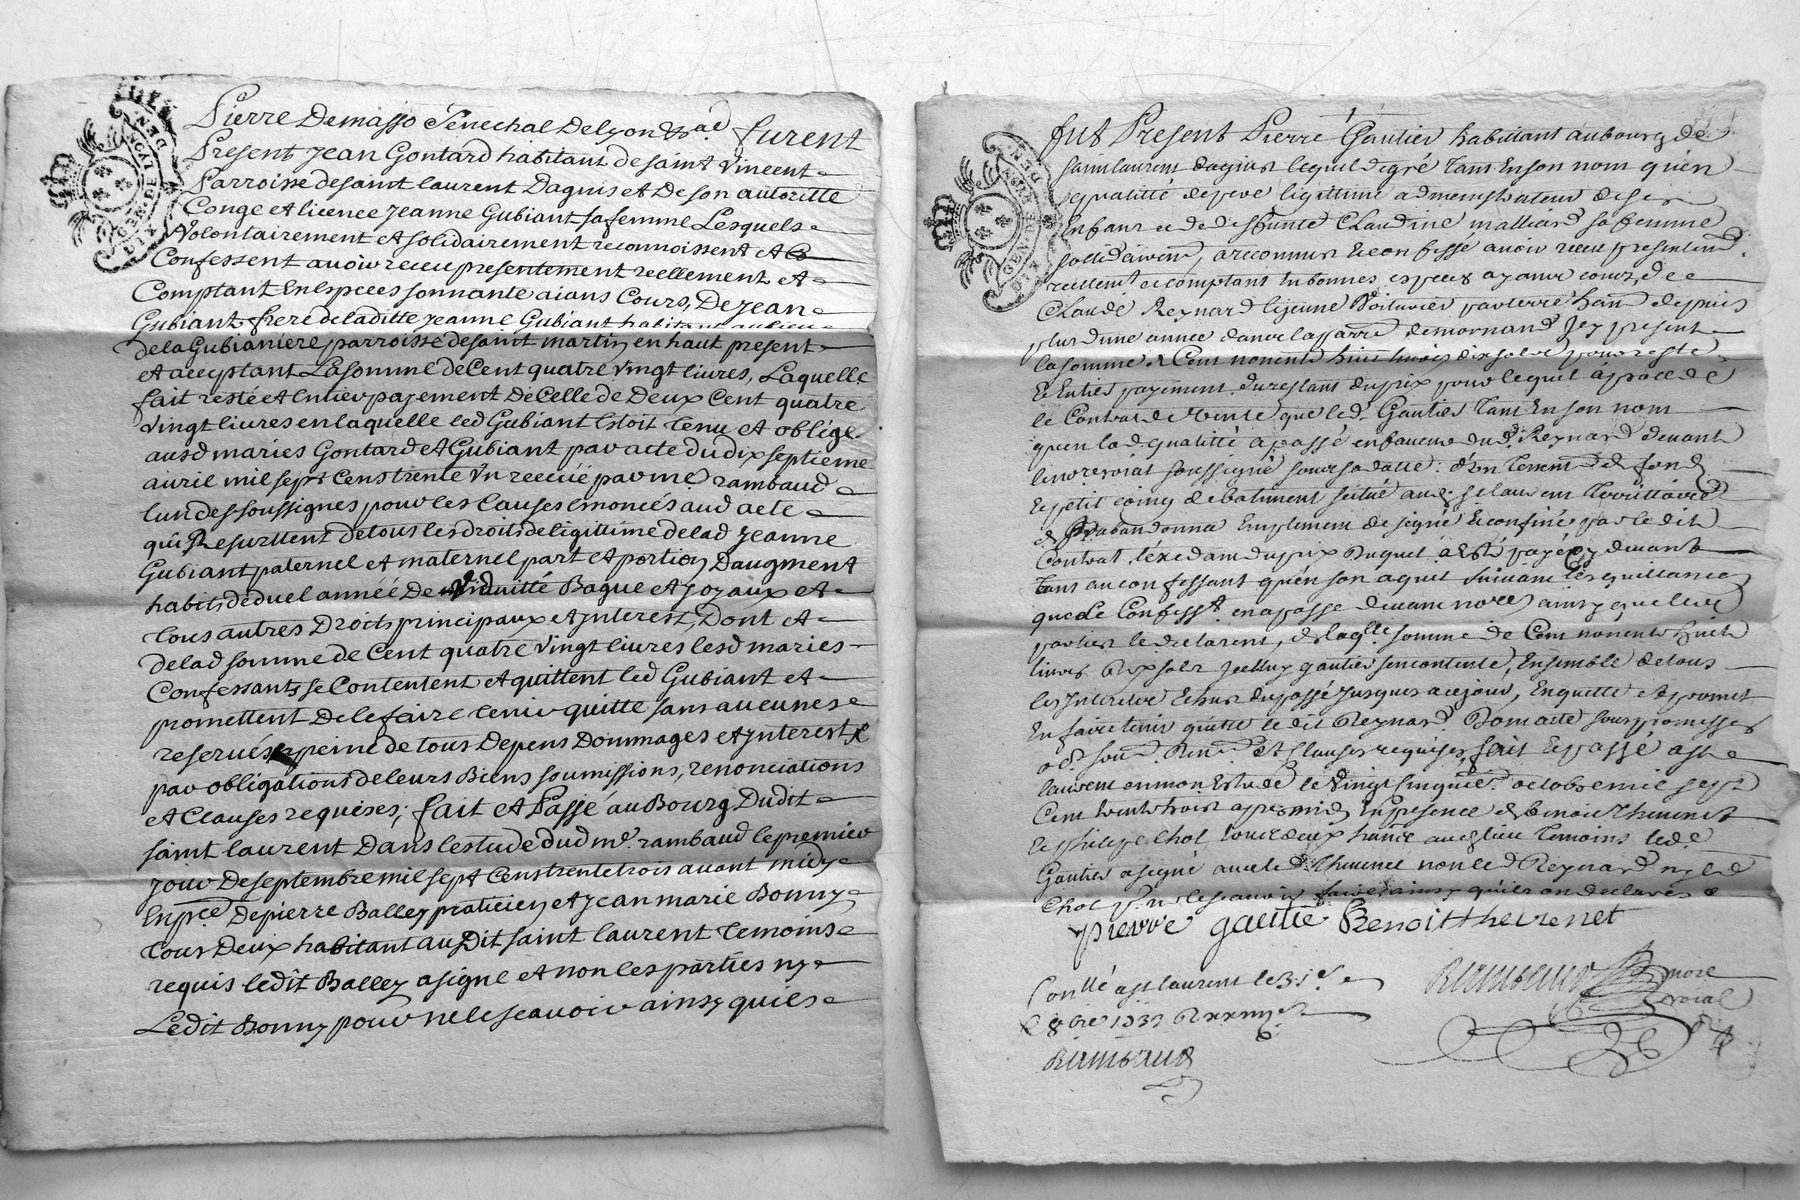 Pierre Demasso Sénéchal De lyon &a furent
Present Jean Gontard habitant de saint Vincent
Parroisse de saint laurent Dagnis et De son autoritté
Conge et licence Jeanne Gubiant sa femme Lesquels
Volontairement et solidairement reconnoissent et
Confessent avoir receu presentement reellement et
Comptant En especes sonnante aians Cours, De Jean
Gubiant frere de laditte Jeanne Gubiant habitant au lieu
de la Gubianiere parroisse de saint martin en haut present
et acceptant La somme de Cent quatre vingt livres, Laquelle
fait reste et Entier payement de Celle de Deux Cent quatre
vingt livres en laquelle led Gubiant Estoit Tenu et oblige
ausd maries Gontard et Gubiant par acte du dix septieme
avril mil sept Cens trente un receüe par me rambaud
lun des soussignes pour les Clauses Enoncés aud acte
qui Resultent de tous les droits de ligittime de lad Jeanne
Gubiant paternel et maternel part et portion Daugment
habits de duel année De viduitté Bague et Joyaux et
tous autres Droits principaux et Interest, Dont et
de lad somme de Cent quatre Vingt livres lesd maries
Confessants se Contentent et quittent led Gubiant et
promettent De le faire tenir quitte sans aucunes
reservés a peine de tous Depens Dommages et Interest
par obligations de leurs Biens soumissions, renonciations
et Clauses requises; fait et Passé au Bourg Dudit
saint laurent Dans lestude dud me. rambaud le premier
Jour De septembre mil sept Cens trente trois avant midy
En pnce De pierre Balley praticien et Jean marie Bonny
tous Deux habitant au Dit saint laurent Temoins
requis ledit Balley a signe et non les parties ny
Ledit Bonny pour ne le scavoir ainsy qu'ils
fut Present Pierre Gautier habittant au bourg de
saint laurent dagnis lequel de gré tant En son nom qu'en
qualitté de pere legittime admenistrateur de ses
Enfans et de deffunte Claudine malliard sa femme
sollidairemt, a reconnu et confesse avoir receu presentemt
reellemt et comptant En bonnes especes ayant cours, de
Claude Reynard le jeune Voiturier par terre hant depuis
plus d'une année dans la parre de mornand Icy present
la somme de Cent nonente huit livres dix sols pour reste
et Entier payement du restant du prix pour lequel a passé
le Contrat de Vente que led Gautier tant En son nom
qu'en lad qualitté a passé en faveur dud Reynard devant
le nore royal soussigné sous sa datte. d'un Tenement de fond
Et petit coing de batiment scitué aud st laurent Territtoire
de Prabandonna Emplement designé et confiné par le dit
Contrat, l'éxedant du prix Duquel a Esté payé
tant au confessant qu'en son aquit suivant les quittances
que le Confesst. en a passé devant nore ainsy que les
parties le declarent, de laqlle somme de Cent nonente huit
livres dix sols Icelluy gautier se contente, Ensemble de tous
les Interets Echus du passé Jusques a ce jour, En quitte et promet
En faire tenir quitte le dit Reynard. Dont acte sous promesses
obs soum. Renon. et Clauses requises, fait et passé a st
laurent en mon Estude le Vingt Cinquie. octobre mil sept
Cent trente trois apres midy En presence de benoit Thevenet
et philipe Chol, tous deux hants aud lieu temoins led
Gautier a signé avec led Thevenet non led Reynard ny led
Chol pr. ne le scavoir faire ainsy qu'ils ont declarés
pierre gautie Benoit thevenet
Conllé a st laurent le 31e
8bre 1733
Rambaud nore
roial
Rambaud